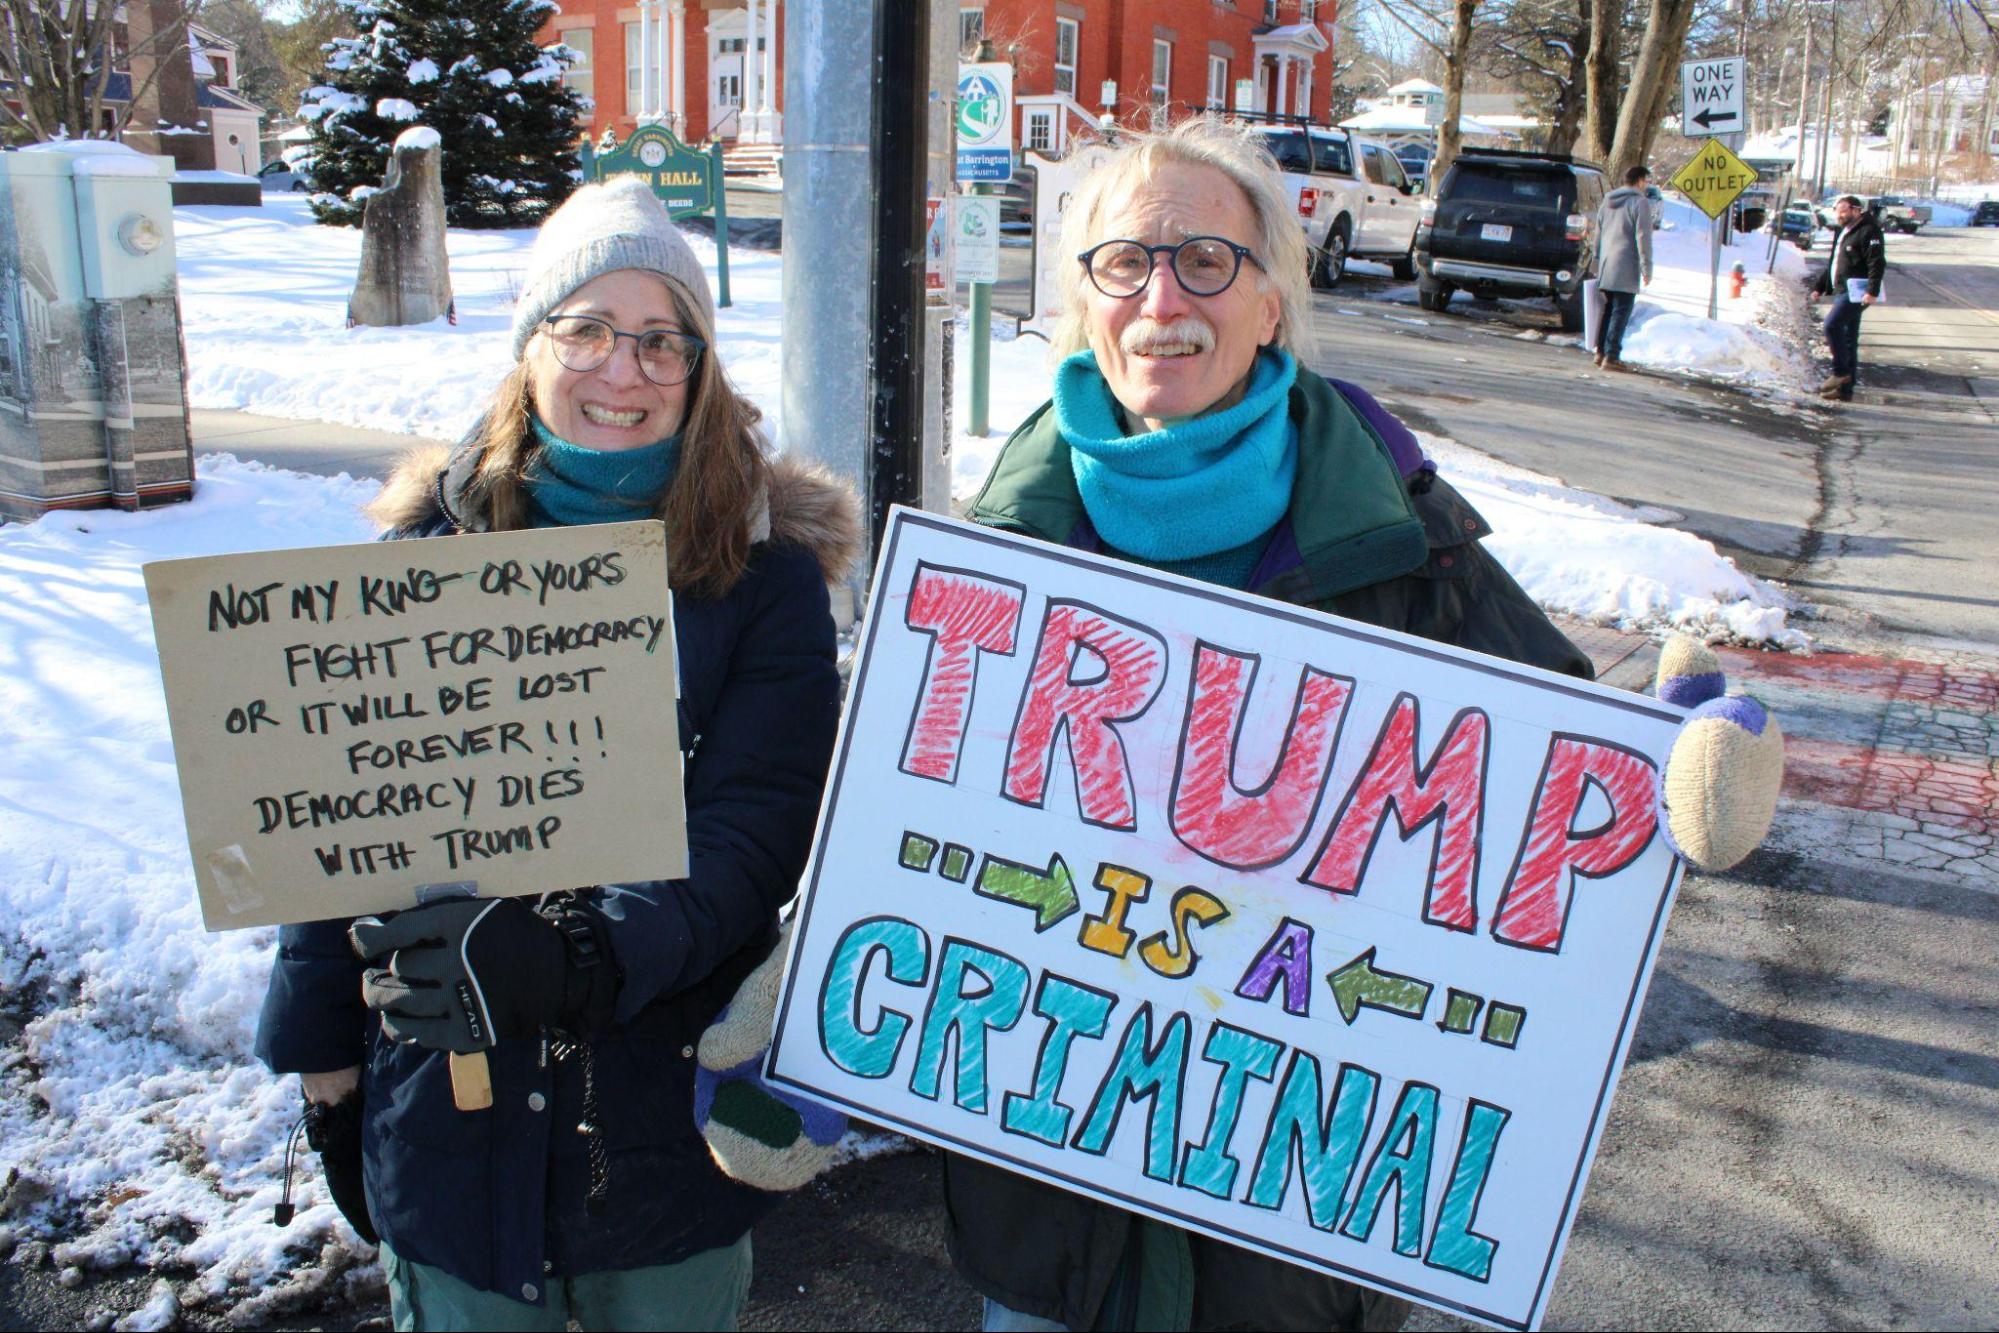 NOT MY KING OR YOURS
FIGHT FOR DEMOCRACY
OR IT WILL BE LOST
FOREVER!!!
DEMOCRACY DIES
WITH TRUMP
TRUMP
IS A
CRIMINAL
HEAD
TOWN HALL
DEEDS
Barrington
ONE
WAY
NO
OUTLET